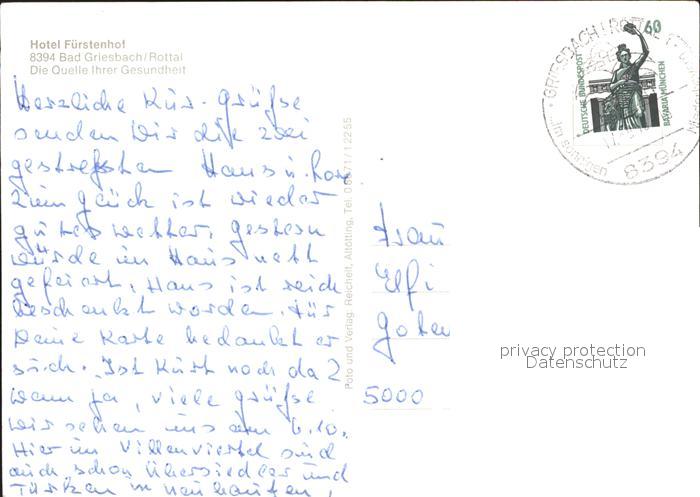 Hotel Fürstenhof
8394 Bad Griesbach/Rottal
Die Quelle Ihrer Gesundheit
Herzliche Kur-Grüße
senden wir die zwei
gestreßten Hans u.
Zum Glück ist wieder
gutes Wetter, gestern
wurde im Haus nett
gefeiert, Hans ist reich
beschenkt worden. Für
Deine Karte bedankt er
sich. Ist Kurt noch da?
wenn ja, viele Grüße
wir sehen uns am 6.10.
Hier im Villenviertel sind
auch schon Übersiedler und
Türken in
Foto und Verlag: Reichelt, Altötting, Tel. 08671/12255
Frau
Elfi
5000
privacy protection
Datenschutz
60
DEUTSCHE BUNDESPOST
BAVARIA MÜNCHEN
GRIESBACH I ROTTAL
im sonnigen
8394